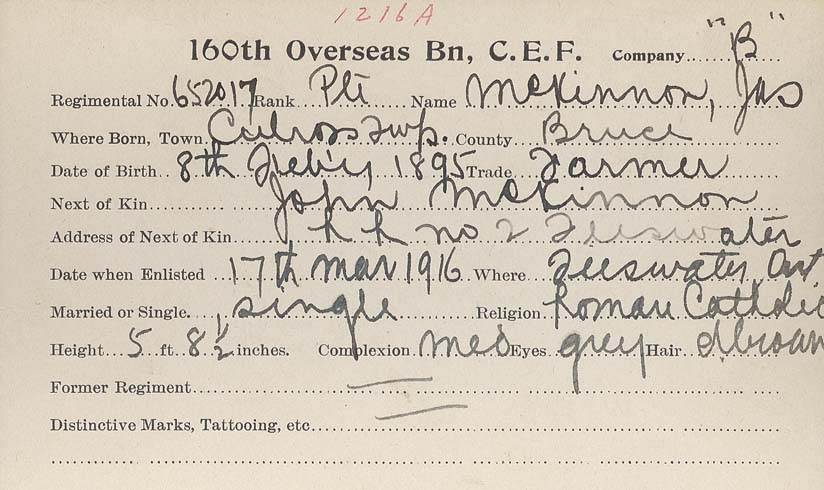 1216A
160th Overseas Bn, C.E.F. Company "B"
Regimental No. 652017 Rank Pte Name McKinnon, Jas
Where Born, Town Culross Twp. County Bruce
Date of Birth 8th Feb'y, 1895 Trade Farmer
Next of Kin John McKinnon
Address of Next of Kin R R no 2 Teeswater
Date when Enlisted 17th Mar 1916 Where Teeswater, Ont
Married or Single Single Religion Roman Catholic
Height 5 ft. 8 1/2 inches. Complexion Med Eyes grey Hair dbrown
Former Regiment —
Distinctive Marks, Tattooing, etc. —